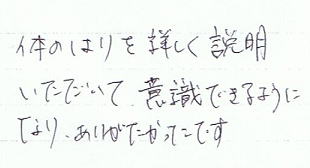 体のはりを詳しく説明
いただいて、意識できるように
なり、ありがたかったです